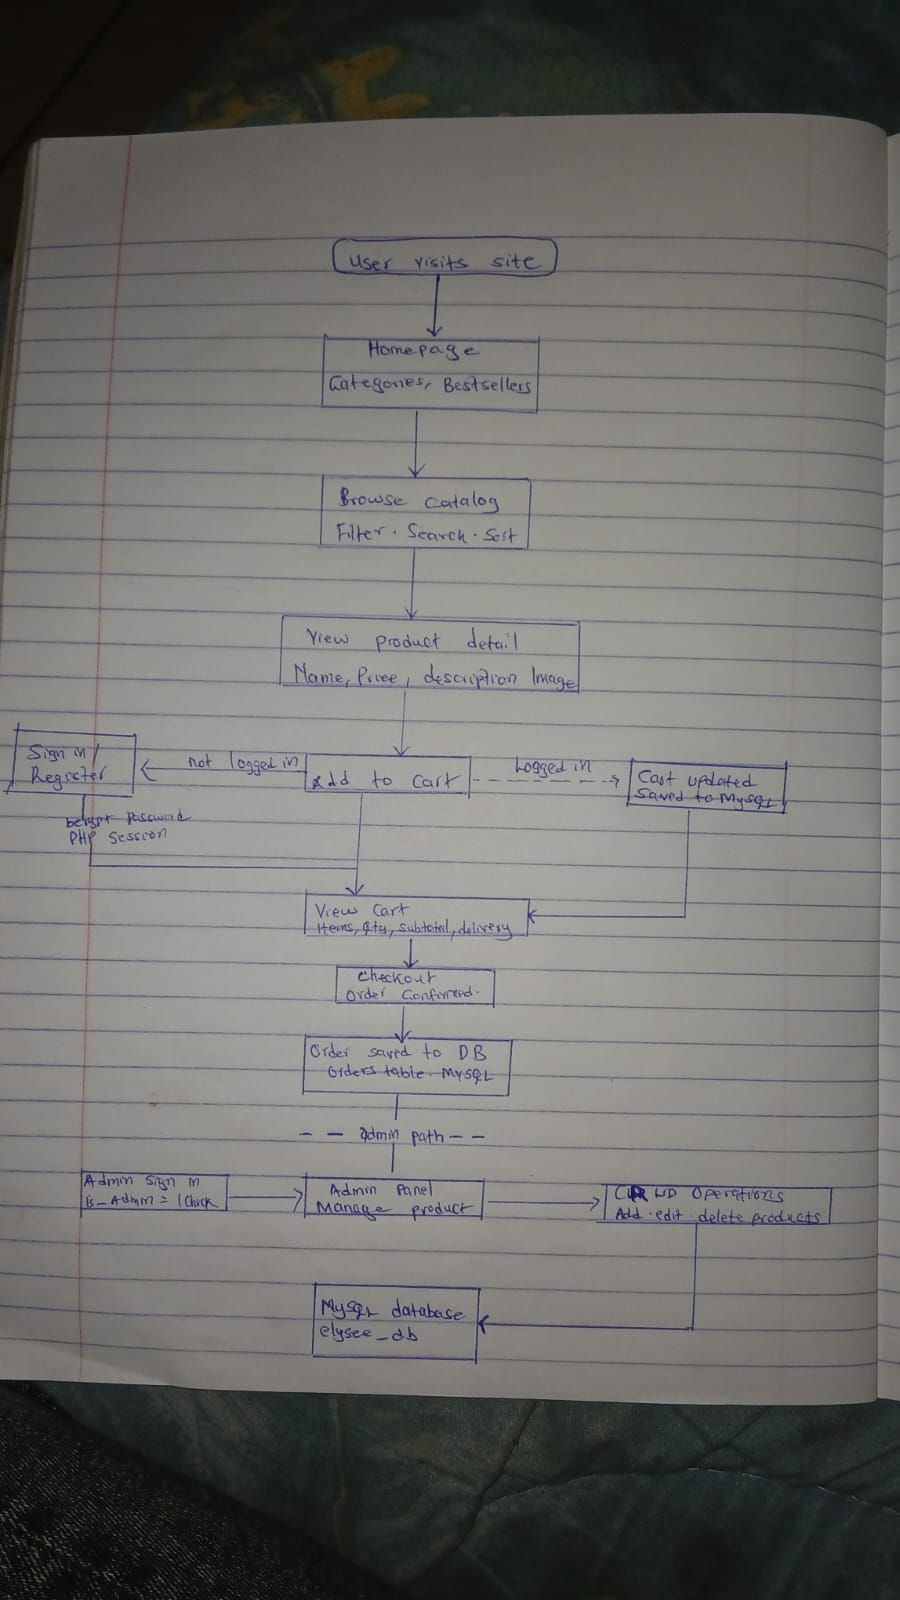 User visits site
Homepage
Categories, Bestsellers
Browse catalog
Filter · Search · Sort
View product detail
Name, Price, description Image
Sign in /
Register
not logged in
Add to cart
Logged in
Cart updated
Saved to MySQL
bcrypt Password
PHP Session
View Cart
Items, Qty, subtotal, delivery
Checkout
Order Confirmed.
Order saved to DB
Orders table. MySQL
-- admin path --
Admin Sign in
is_Admin = 1 Check
Admin Panel
Manage product
CRUD Operations
Add · edit · delete products
MySQL database
elysee_db